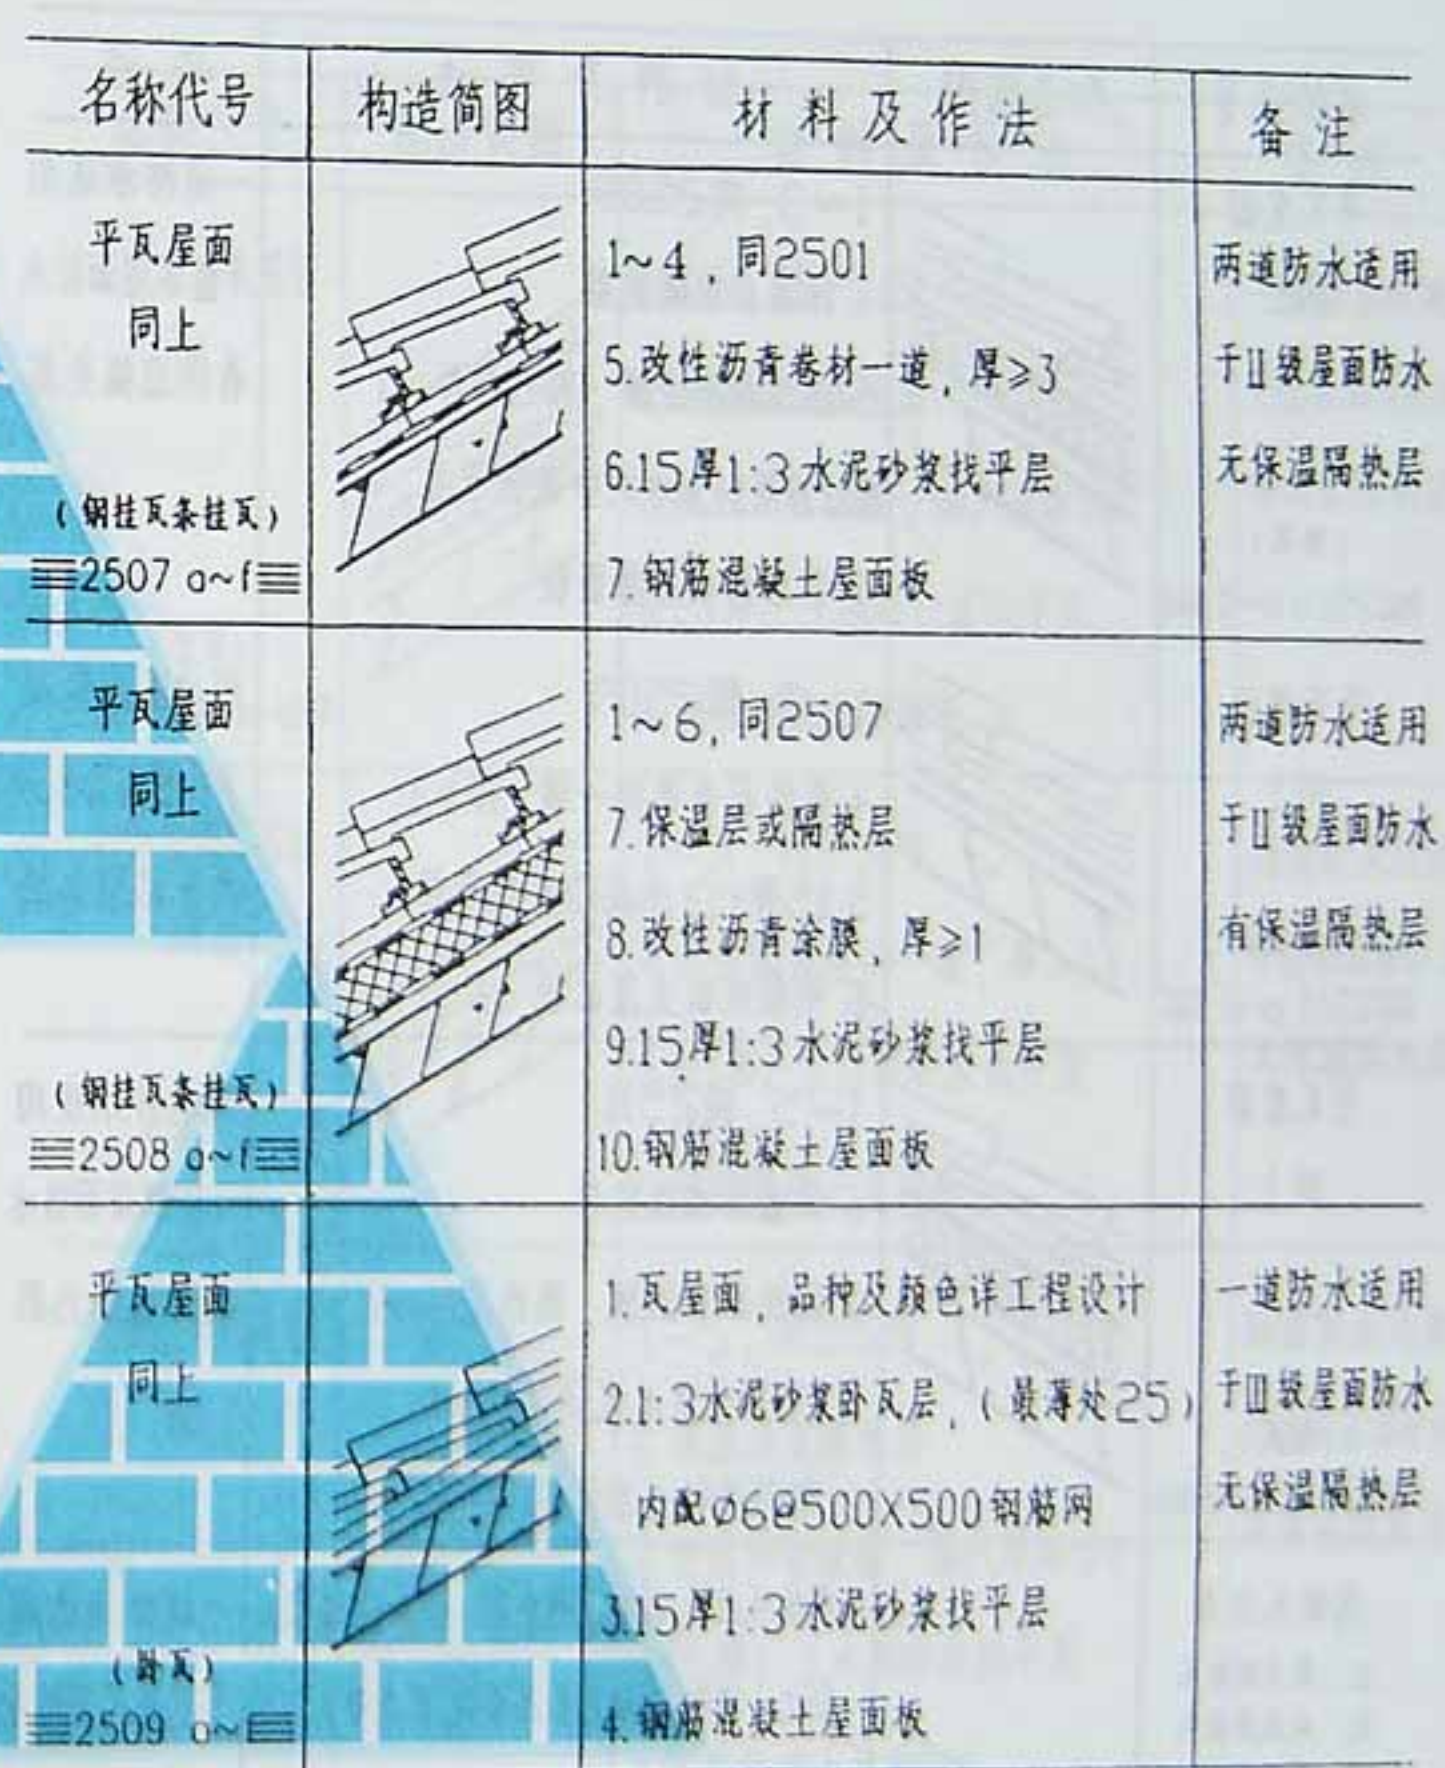 名称代号 构造简图 材料及作法 备注
平瓦屋面
同上
(钢挂瓦条挂瓦)
2507 a~f
1~4,同2501
5.改性沥青卷材一道,厚≥3
6.15厚1:3水泥砂浆找平层
7.钢筋混凝土屋面板
两道防水适用
于Ⅱ级屋面防水
无保温隔热层
平瓦屋面
同上
(钢挂瓦条挂瓦)
2508 a~f
1~6,同2507
7.保温层或隔热层
8.改性沥青涂膜,厚≥1
9.15厚1:3水泥砂浆找平层
10.钢筋混凝土屋面板
两道防水适用
于Ⅱ级屋面防水
有保温隔热层
平瓦屋面
同上
(卧瓦)
2509 a~
1.瓦屋面,品种及颜色详工程设计
2.1:3水泥砂浆卧瓦层,(最薄处25)
内配Ø6@500X500钢筋网
3.15厚1:3水泥砂浆找平层
4.钢筋混凝土屋面板
一道防水适用
于Ⅲ级屋面防水
无保温隔热层